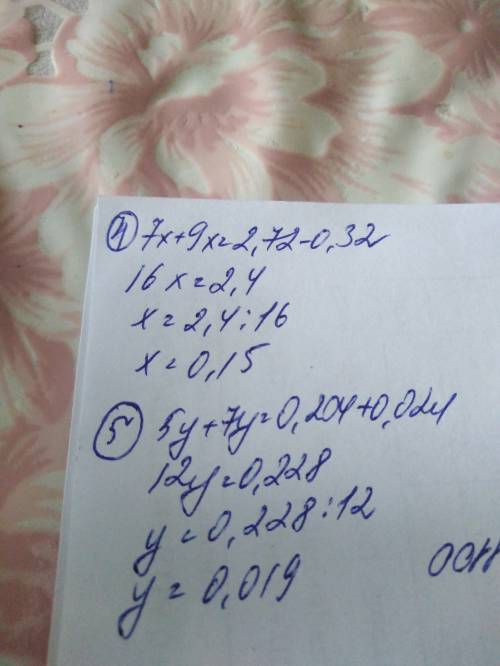 4 7x+9x=2,72-0,32
16x=2,4
x=2,4:16
x=0,15
5 5y+7y=0,204+0,024
12y=0,228
y=0,228:12
y=0,019